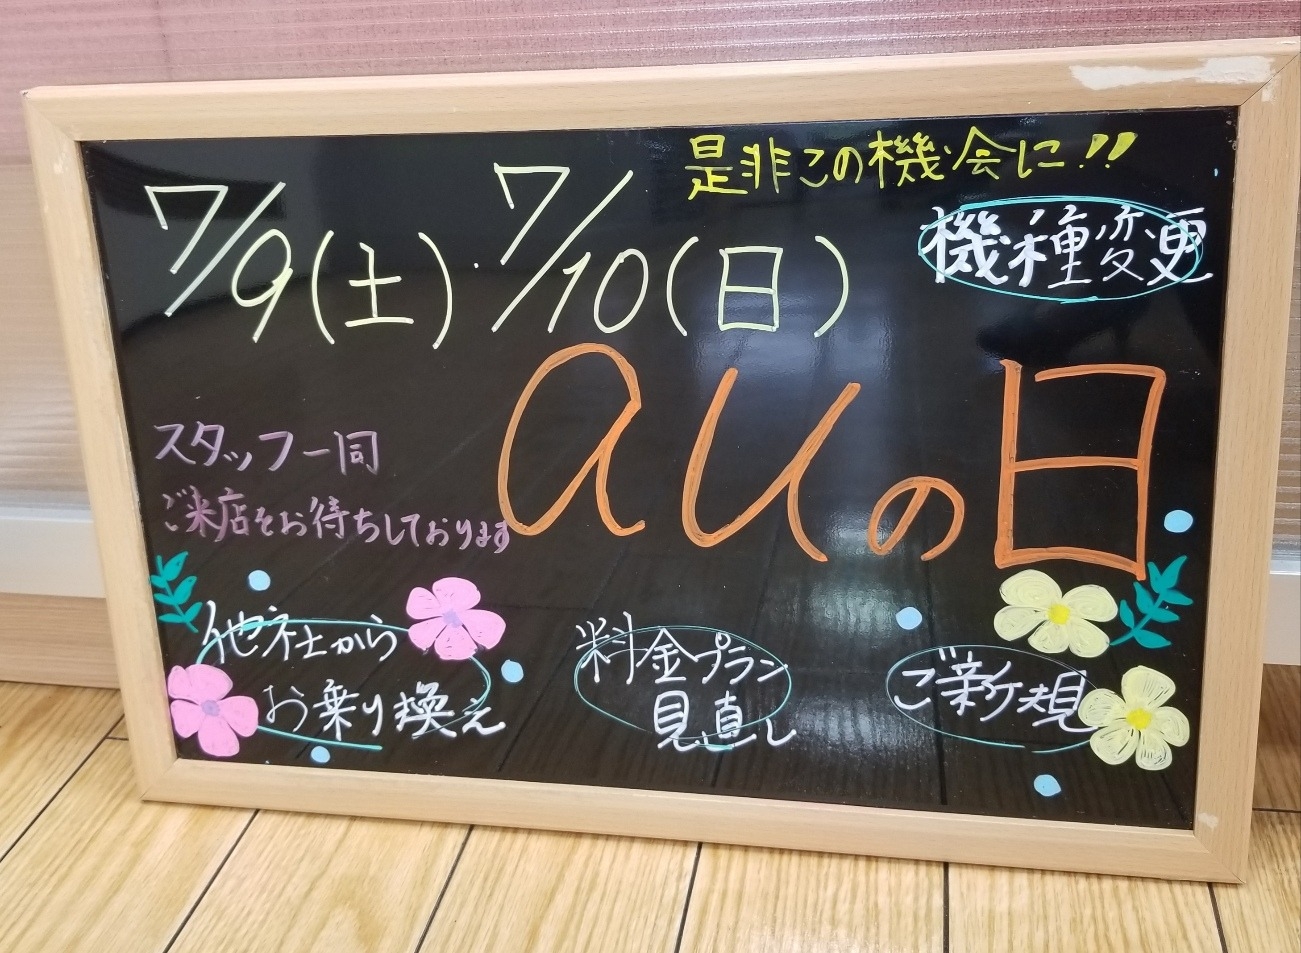 是非この機会に!!
7/9(土)・7/10(日)
機種変更
auの日
スタッフ一同
ご来店をお待ちしております
他社から
お乗り換え
料金プラン
見直し
ご新規